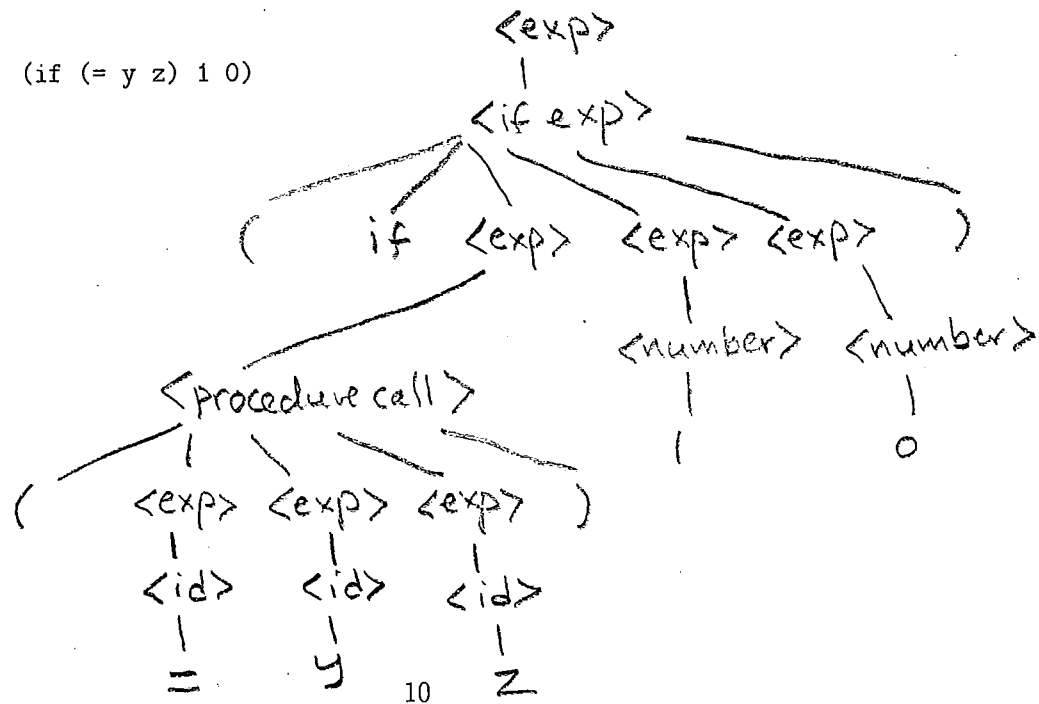 <exp>
(if (= y z) 1 0)
<if exp>
( if <exp> <exp> <exp> )
<number> <number>
<procedure call>
1 0
( <exp> <exp> <exp> )
<id> <id> <id>
= y z
10